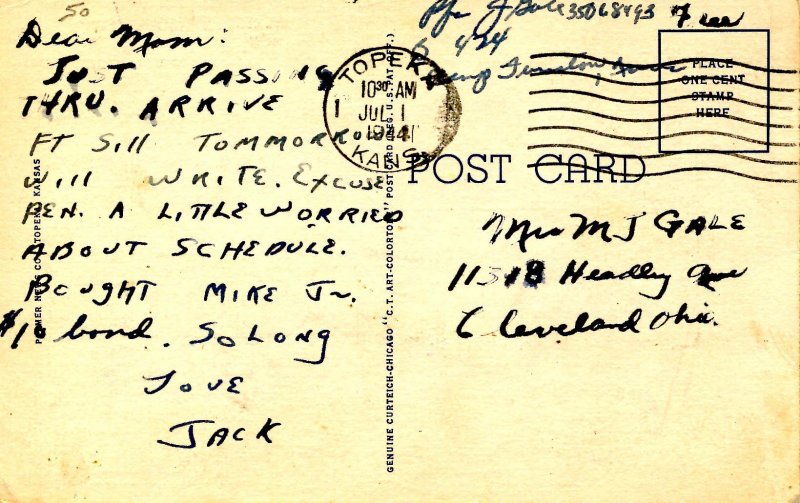 50
Dear Mom:
JUST PASSING
THRU. ARRIVE
FT Sill TOMMORROW
Will WRITE. EXCUSE
PEN. A LITTLE WORRIED
ABOUT SCHEDULE.
BOUGHT MIKE Jr.
$10 bond. SO LONG
LOVE
JACK
Pfc J Gale 35068493 Free
424
Camp Funston, Kans
TOPEKA
10 30 AM
JUL 1
1944
KANS
PLACE
ONE CENT
STAMP
HERE
POST CARD
Mrs M J GALE
11518 Headley Ave
Cleveland Ohio.
KANSAS
GENUINE CURTEICH-CHICAGO "C.T. ART-COLORTONE" POST CARD (REG. U.S. PAT. OFF.)